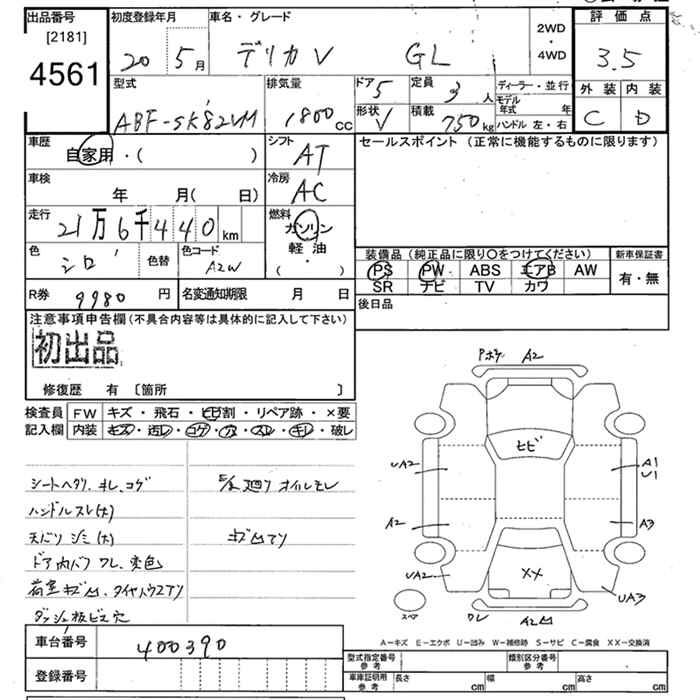 出品番号
[2181]
4561
初度登録年月
20 5月
車名・グレード
デリカV GL
2WD
・
4WD
評価点
3.5
外装 内装
C D
型式
ABF-SK82VM
排気量
1800cc
ドア 5
定員 3人
形状 V
積載 750kg
ディーラー・並行
モデル年式 年
ハンドル 左・右
車歴
自家用・( )
シフト
AT
セールスポイント (正常に機能するものに限ります)
車検
年 月( 日)
冷房
AC
走行
21万6千440km
燃料
ガソリン
軽油
( ・ )
色
シロ
色替
色コード
A2W
装備品 (純正品に限り○をつけてください)
新車保証書
PS PW ABS エアB AW
SR ナビ TV カワ
有・無
R券 9980円
名変通知期限 月 日
後日品
注意事項申告欄(不具合内容等は具体的に記入して下さい)
初出品
修復歴 有 〔箇所 〕
検査員 FW キズ・飛石・ヒビ割・リペア跡・×要
記入欄 内装 キズ・汚レ・コゲ・穴・スレ・キレ・破レ
シートヘタリ、キレ、コゲ
ハンドルスレ(大)
天バリ シミ(大)
ドア内バリ ワレ、変色
荷室キズ凹、タイヤハウスアリ
ダッシュ板ビス穴
廻りオイルモレ
キズ凹アリ
A2
ヒビ
UA2
A1
U1
A2
A3
UA2
XX
UA3
スペア
ワレ A2凹
A-キズ E-エクボ U-凹み W-補修跡 S-サビ C-腐食 XX-交換済
車台番号 400390
登録番号
型式指定番号
参考
類別区分番号
参考
車庫証明用
参考
長さ cm 幅 cm 高さ cm